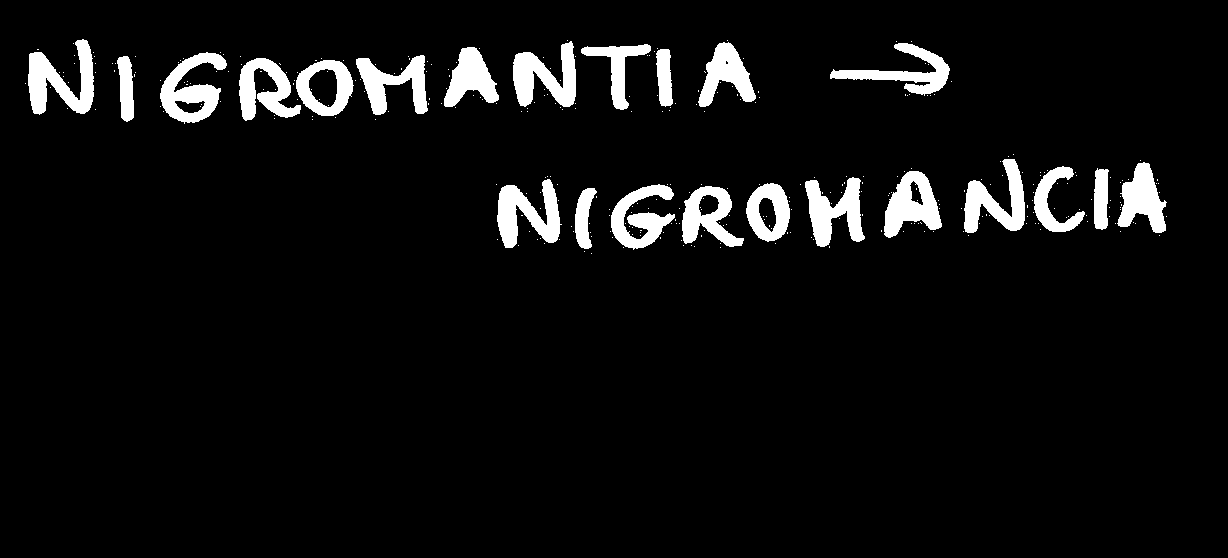 NIGROMANTIA →
NIGROMANCIA